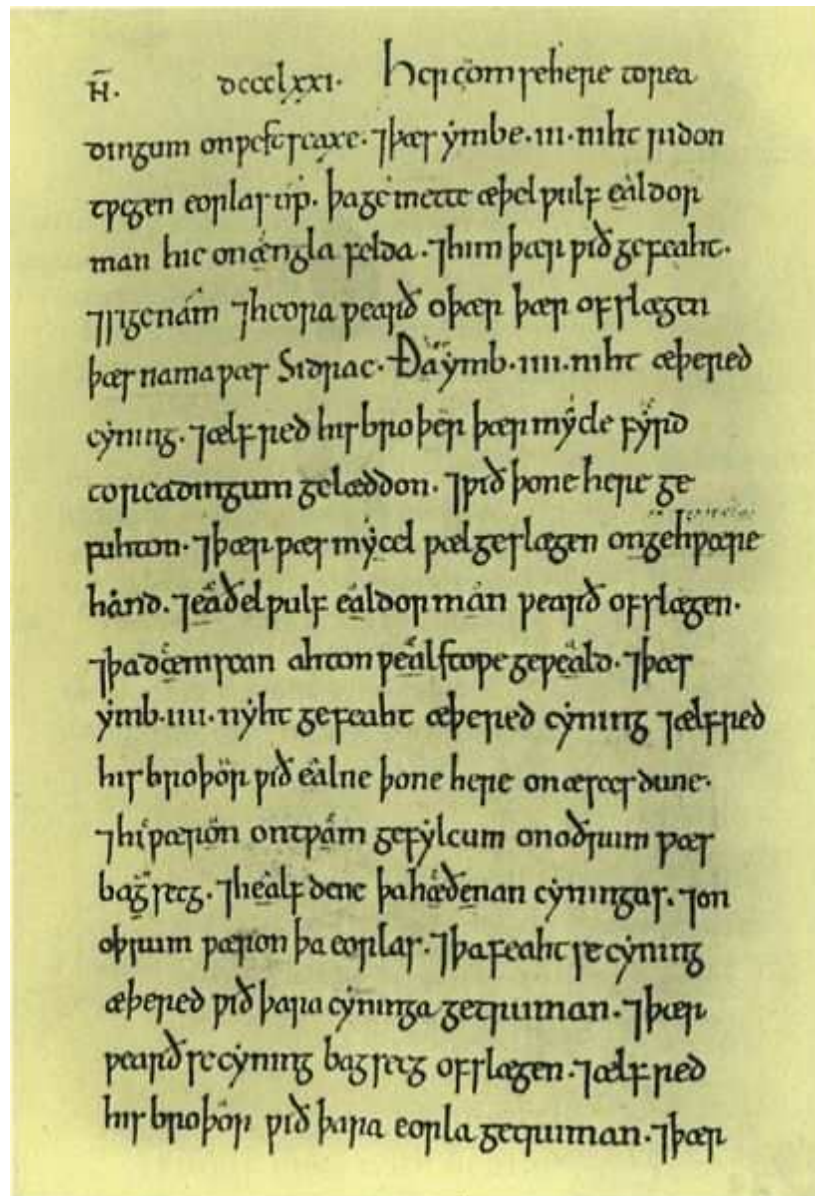 H̄. dcccLxxi. Her com se here to rea
dingum on ƿest seaxe. ⁊ þæs ẏmbe .iii. niht ridon
tƿegen eorlas up. þa gemette æþelƿulf ealdor
man hie on ængla felda. ⁊ him þær ƿið gefeaht.
⁊ sige nám ⁊ heora ƿearð oþær þær ofslægen
þæs nama ƿæs Sidrac. Ða ẏmb .iiii. niht æþered
cẏning. ⁊ ælfred his broþer þær mẏcle fẏrd
to readingum gelæddon. ⁊ ƿið þone here ge
fuhton. ⁊ þær ƿæs mẏcel ƿælgeslægen on gehƿæþre
hánd. ⁊ eaðelƿulf ealdorman ƿearð ofslægen.
⁊ þa dæniscan ahton ƿealstoƿe geƿeald. ⁊ þæs
ẏmb .iiii. nẏht gefeaht æþered cẏning ⁊ ælfred
his broþor ƿið ealne þone here on æscesdune.
⁊ hi ƿæron on tƿám gefẏlcum on oðrum ƿæs
bagsecg. ⁊ healfdene þa hæðenan cẏningas. ⁊ on
oþrum ƿæron þa eorlas. ⁊ þa feaht se cẏning
æþered ƿið þara cẏninga getruman. ⁊ þær
ƿearð se cẏning bagsecg ofslægen. ⁊ ælfred
his broþor ƿið þara eorla getruman. ⁊ þær